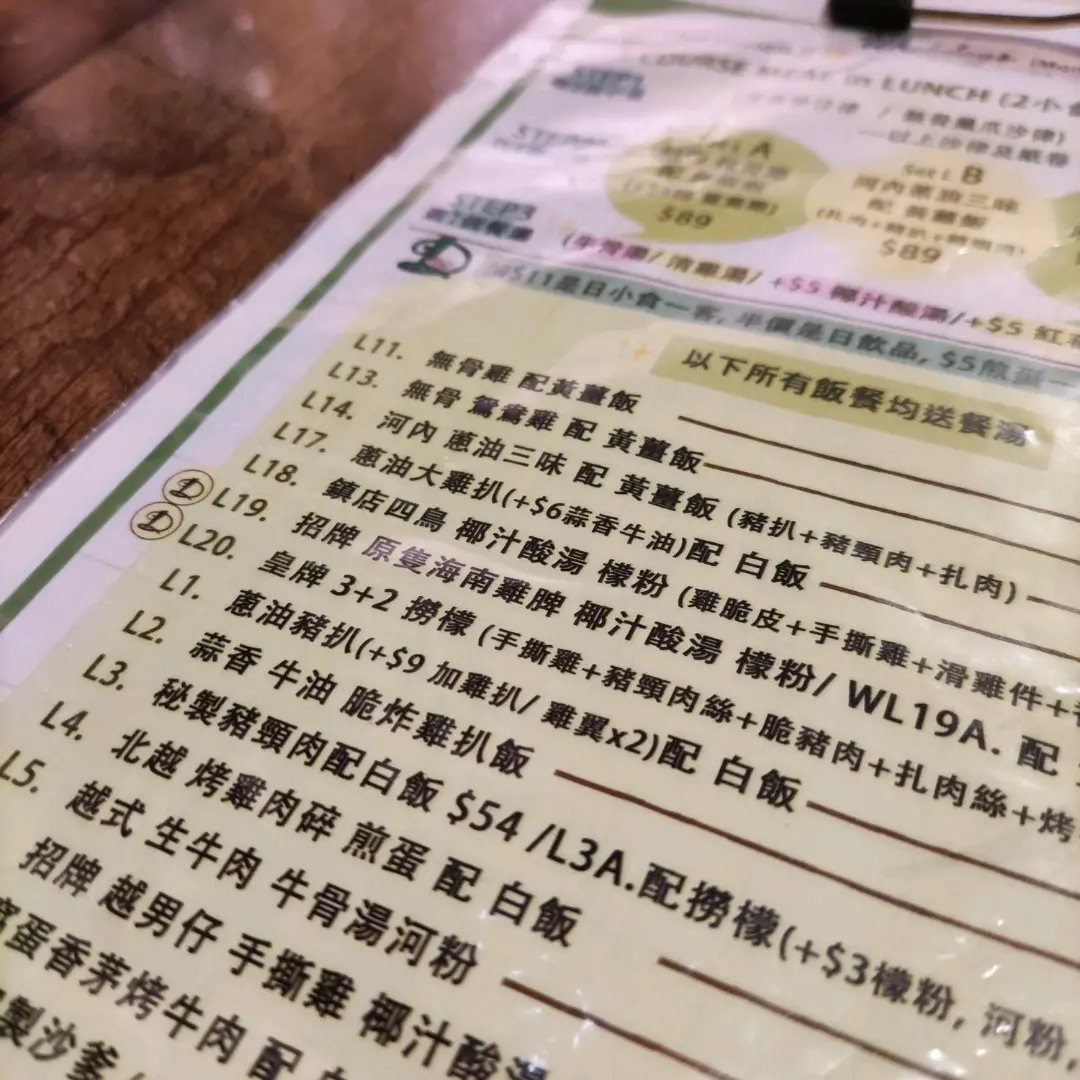 COURSE MEAL in LUNCH (2小
以上沙律及紙卷
A
$89
Set L B
河內蔥油三味
配 黃薑飯
$89
(牛骨湯/ 清雞湯/ +$5 椰汁酸湯/+$5 紅
+$11是日小食一客, 半價是日飲品, $5煎蛋一
以下所有飯餐均送餐湯
L11. 無骨雞 配黃薑飯
L13. 無骨 鴛鴦雞 配 黃薑飯
L14. 河內 蔥油三味 配 黃薑飯 (豬扒+豬頸肉+扎肉)
L17. 蔥油大雞扒(+$6蒜香牛油)配 白飯
L18. 鎮店四鳥 椰汁酸湯 檬粉 (雞脆皮+手撕雞+滑雞件+
L19. 招牌 原隻海南雞脾 椰汁酸湯 檬粉/ WL19A. 配
L20. 皇牌 3+2 撈檬 (手撕雞+豬頸肉絲+脆豬肉+扎肉絲+烤
L1. 蔥油豬扒(+$9 加雞扒/ 雞翼x2)配 白飯
L2. 蒜香 牛油 脆炸雞扒飯
L3. 秘製豬頸肉配白飯 $54 /L3A.配撈檬(+$3檬粉, 河粉,
L4. 北越 烤雞肉碎 煎蛋 配 白飯
L5. 越式 生牛肉 牛骨湯河粉
招牌 越男仔 手撕雞 椰汁酸湯
蛋香茅烤牛肉 配
製沙爹